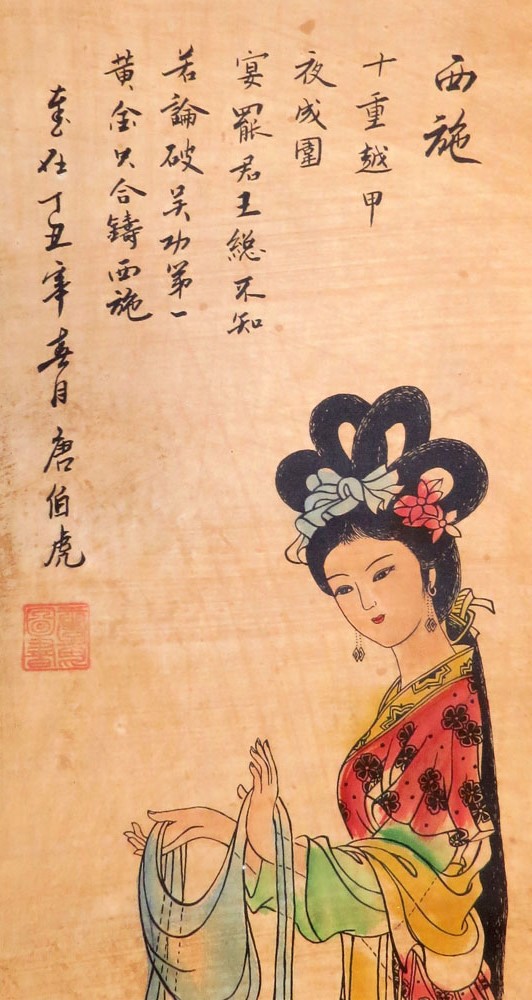 西施
十重越甲
夜成圍
宴罷君王總不知
若論破吴功第一
黄金只合鑄西施
在丁丑春月唐伯虎